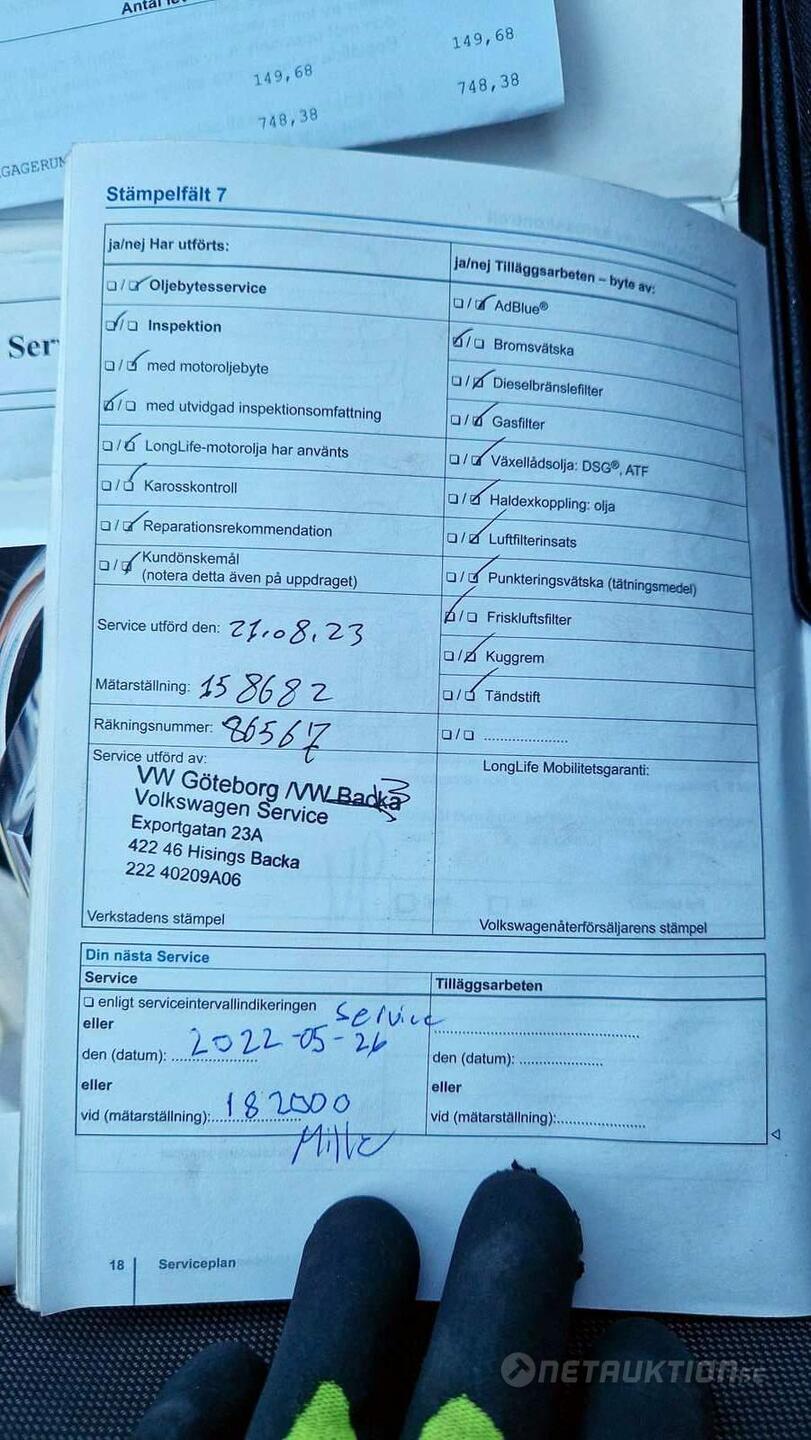 149,68
149,68
748,38
748,38
Stämpelfält 7
ja/nej Har utförts:
❏ / ☑ Oljebytesservice
☑ / ❏ Inspektion
❏ / ☑ med motoroljebyte
☑ / ❏ med utvidgad inspektionsomfattning
❏ / ☑ LongLife-motorolja har använts
❏ / ☑ Karosskontroll
❏ / ☑ Reparationsrekommendation
❏ / ☑ Kundönskemål
(notera detta även på uppdraget)
Service utförd den: 21.08.23
Mätarställning: 158682
Räkningsnummer: 86567
Service utförd av:
VW Göteborg /VW Backa
Volkswagen Service
Exportgatan 23A
422 46 Hisings Backa
222 40209A06
Verkstadens stämpel
ja/nej Tilläggsarbeten – byte av:
❏ / ☑ AdBlue®
☑ / ❏ Bromsvätska
❏ / ☑ Dieselbränslefilter
❏ / ☑ Gasfilter
❏ / ☑ Växellådsolja: DSG®, ATF
❏ / ☑ Haldexkoppling: olja
❏ / ☑ Luftfilterinsats
❏ / ☑ Punkteringsvätska (tätningsmedel)
☑ / ❏ Friskluftsfilter
❏ / ☑ Kuggrem
❏ / ☑ Tändstift
❏ / ❏ .....................
LongLife Mobilitetsgaranti:
Volkswagenåterförsäljarens stämpel
Din nästa Service
Service
❏ enligt serviceintervallindikeringen
Service
eller
den (datum): 2022-05-26
eller
vid (mätarställning): 182000
Tilläggsarbeten
den (datum): .....................
eller
vid (mätarställning):.....................
18 Serviceplan
NETAUKTION.SE